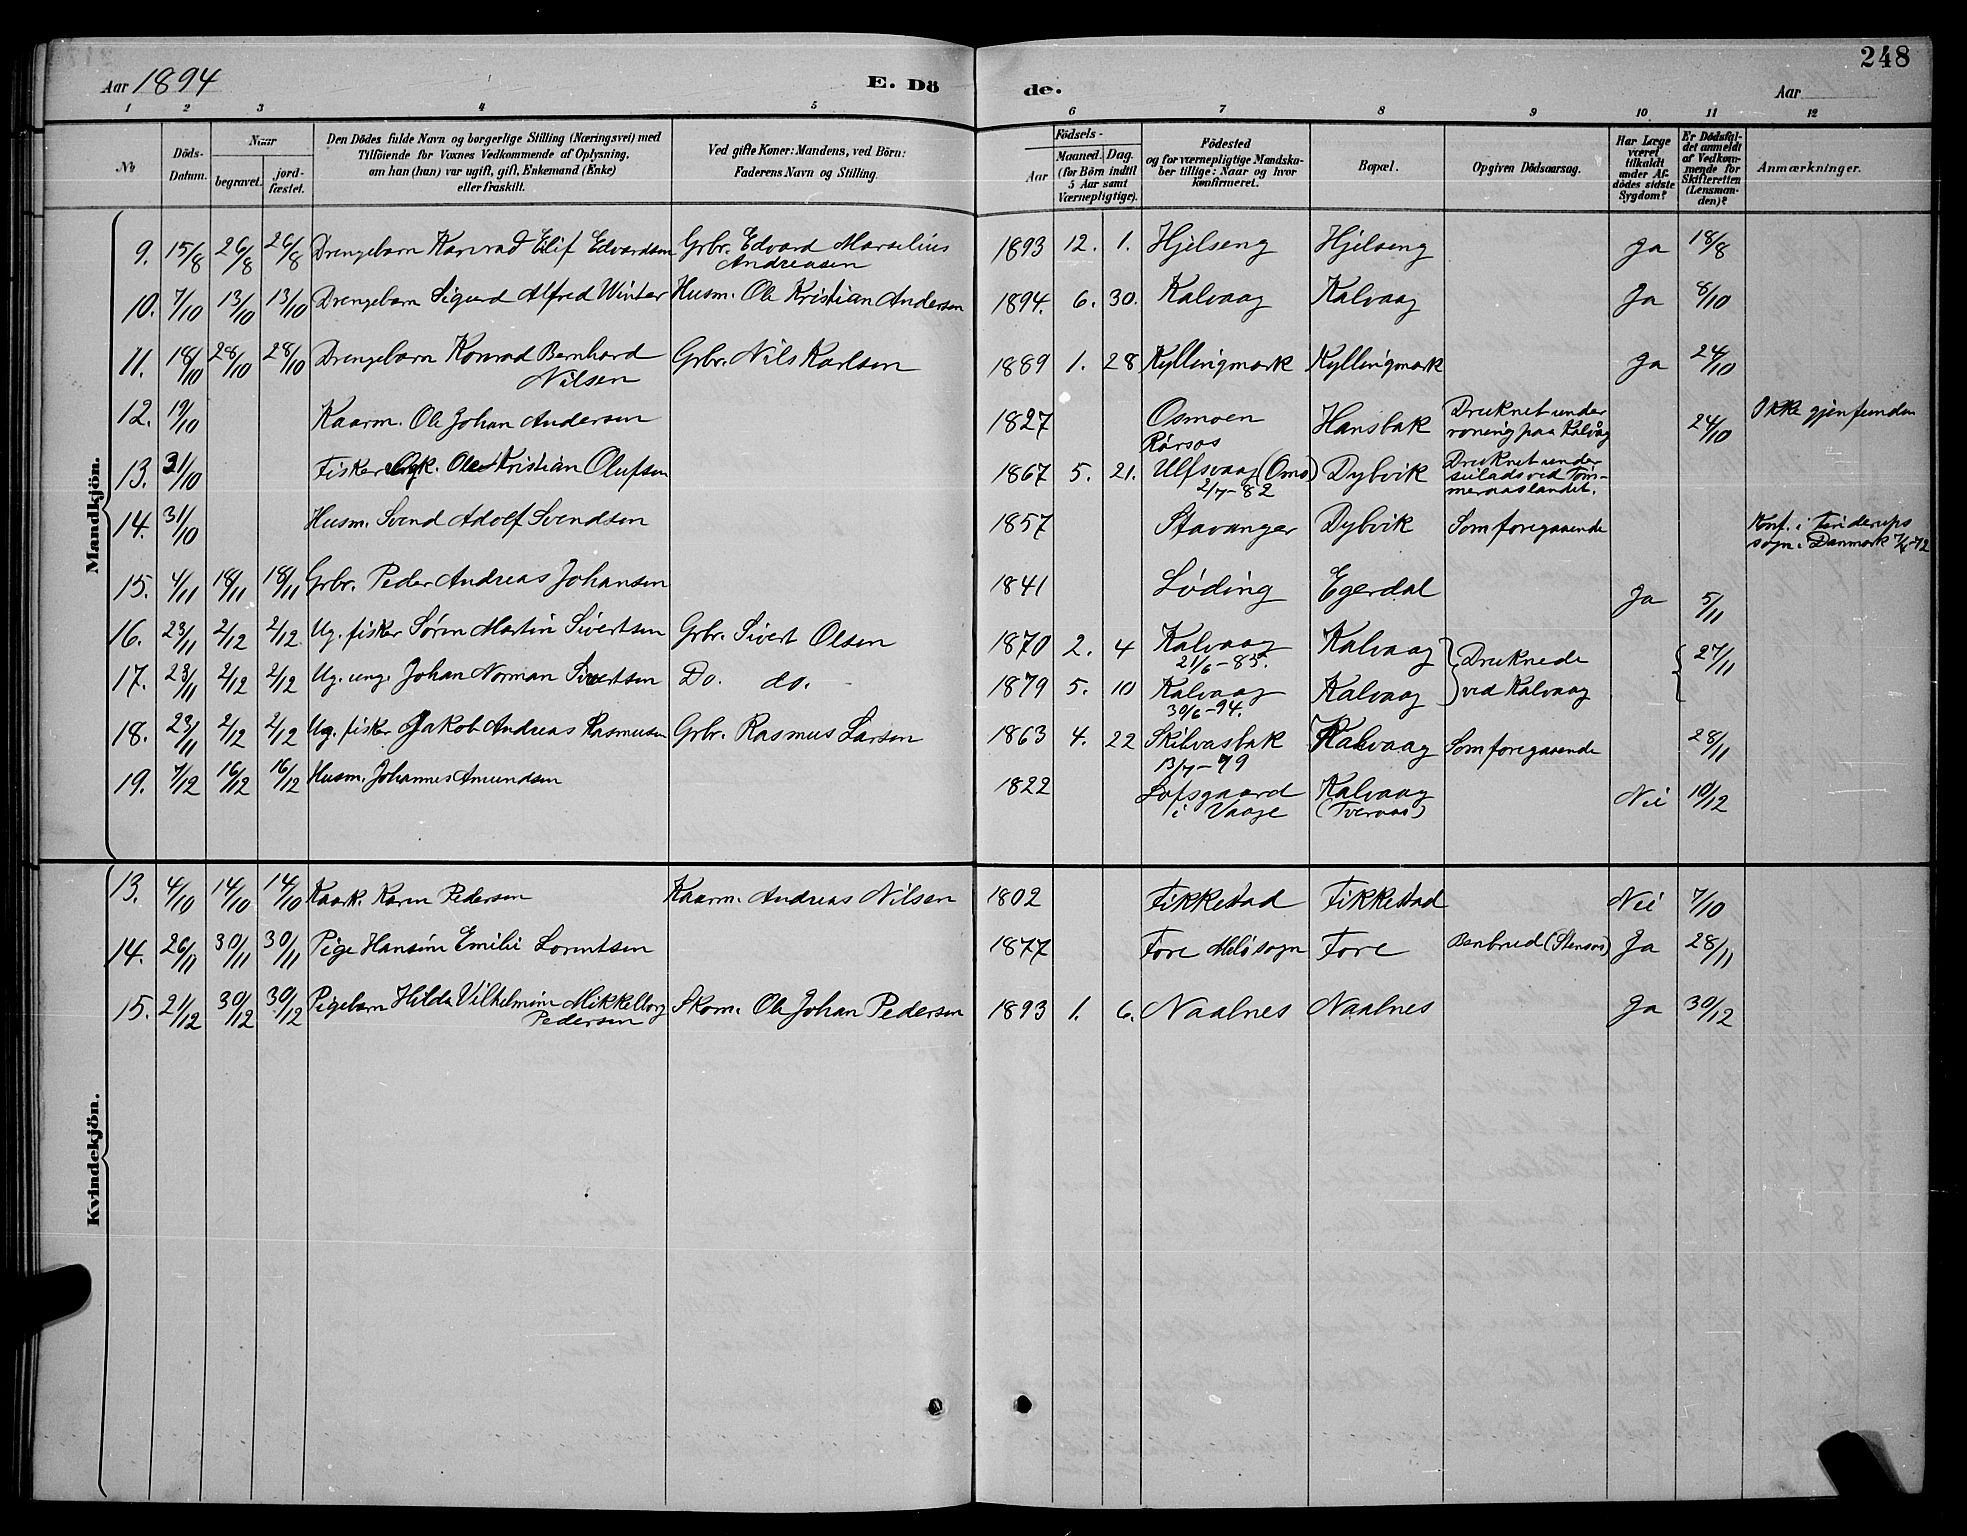 248
Aar 1894 E. Dö de. Aar
1 2 3 4 5 6 7 8 9 10 11 12
No Döds-Datum. Naar begravet. jordfæstet. Den Dödes fulde Navn og borgerlige Stilling (Næringsvei) med Tilföiende for Voxnes Vedkommende af Oplysning, om han (hun) var ugift, gift, Enkemand (Enke) eller fraskilt. Ved gifte Koner: Mandens, ved Börn: Faderens Navn og Stilling. Födsels- Aar Maaned. Dag. (for Börn indtil 5 Aar samt Værnepligtige). Födested og for værnepligtige Mandskaber tillige: Naar og hvor Konfirmeret. Bopæl. Opgiven Dödsaarsag. Har Læge været tilkaldt under Afdödes sidste Sygdom? Er Dödsfaldet anmeldt af Vedkommende for Skifteretten (Lensmanden)? Anmærkninger.
Mandkjön.
9. 15/8 26/8 26/8 Drengebarn Konrad Elif Edvardsen Grbr. Edvard Marselius Andreasen 1893 12. 1. Hjelseng Hjelseng Ja 18/8
10. 7/10 13/10 13/10 Drengebarn Sigurd Alfred Winter Husm. Ole Kristian Andersen 1894. 6. 30. Kalvaag Kalvaag Ja 8/10
11. 18/10 28/10 28/10 Drengebarn Konrad Bernhard Nilsen Grbr. Nils Karlsen 1889 1. 28 Kyllingmark Kyllingmark Ja 24/10
12. 19/10 Kaarm. Ole Johan Andersen 1827 Osmoen Rörsos Hansbak Druknet under roning paa Kalvåg 24/10 Ikke gjenfunden
13. 31/10 Fisker Ole Kristian Olufsen 1867 5. 21. Ulfsvaag (Oms) 2/7-82 Dybvik Druknet under seilads ved Tömmeraaslandet.
14. 31/10 Husm. Svend Adolf Svendsen 1857 Stavanger Dybvik Som foregaaende Konf. i sogn i Danmark -72
15. 4/11 18/11 18/11 Grbr. Peder Andreas Johansen 1841 Löding Egerdal Ja 5/11
16. 23/11 2/12 2/12 Ug. fisker Sören Martin Sivertsen Grbr. Sivert Olsen 1870 2. 4 Kalvaag 21/6-85. Kalvaag Druknede ved Kalvaag 27/11
17. 23/11 2/12 2/12 Ug. ung. Johan Norman Sivertsen Do. do. 1879 5. 10 Kalvaag 30/6-94. Kalvaag
18. 23/11 2/12 2/12 Ug. fisker Jakob Andreas Rasmusen Grbr. Rasmus Larsen 1863 4. 22 Skilvasbak 13/7-79 Kalvaag Som foregaaende 28/11
19. 7/12 16/12 16/12 Husm. Johannes Amundsen 1822 Lofsgaard i Vaage Kalvaag (Tveraas) Nei 10/12
Kvindekjön.
13. 4/10 14/10 14/10 Kaark. Karen Pedersen Kaarm. Andreas Nilsen 1802 Fikkestad Fikkestad Nei 7/10
14. 26/11 30/11 30/11 Pige Hansine Emilie Lorentsen 1877 Fore Melö sogn Fore Benbrud (Stensaas) Ja 28/11
15. 21/12 30/12 30/12 Pigebarn Hilda Vilhelmine Mikkelborg Pedersen Skom. Ole Johan Pedersen 1893 1. 6. Naalnes Naalnes Ja 30/12